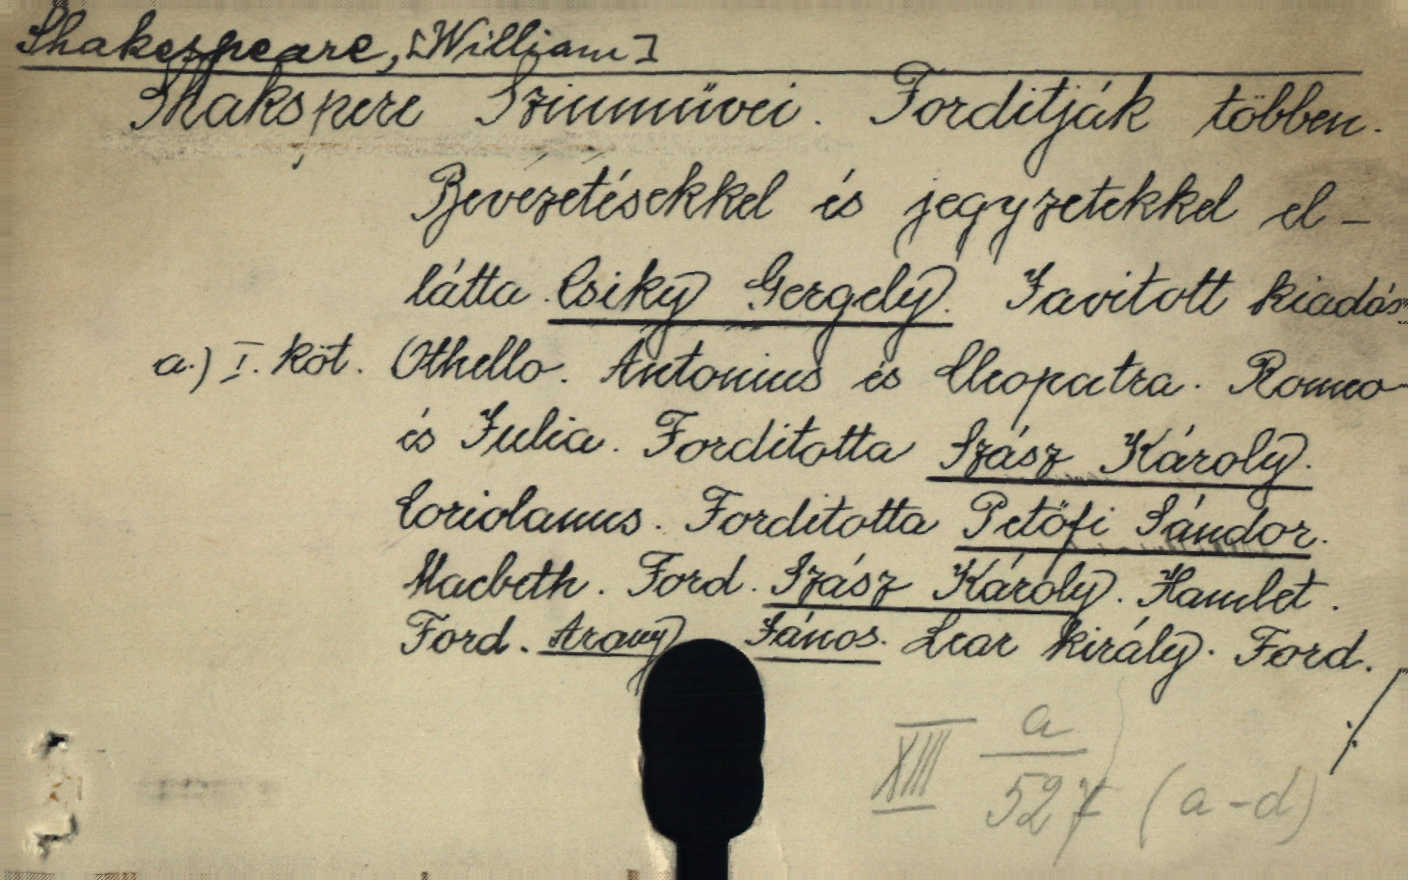 Shakespeare, [William]
Shakspere Szinmüvei. Forditják többen.
Bevezetésekkel és jegyzetekkel el-
látta Csiky Gergely. Javitott kiadás
a.) I. köt. Othello. Antonius és Cleopatra. Romeo
és Julia. Forditotta Szász Károly.
Coriolanus. Forditotta Petőfi Sándor.
Macbeth. Ford. Szász Károly. Hamlet.
Ford. Arany János. Lear király. Ford.
./.
XIII a/527 (a-d)